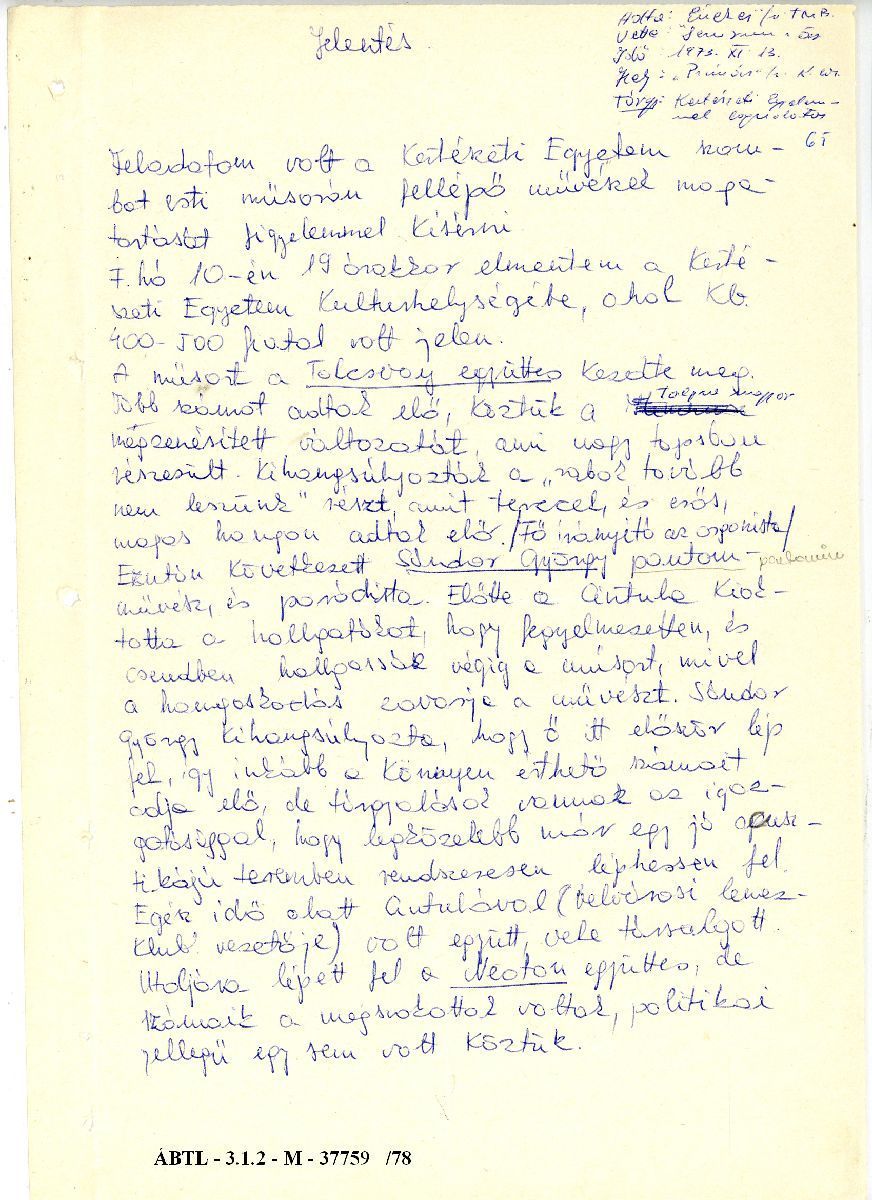 Jelentés.
Adta: "Énekes" fn. TMB.
Vette:
Idő: 1973. XI. 13.
Hely: "Primás" fn. K. lak.
Tárgy: Kertészeti Egyetem-
mel kapcsolatos
61
Feladatom volt a Kertészeti Egyetem szom-
bat esti műsorán fellépő művészek maga-
tartását figyelemmel kísérni.
F. hó 10-én 19 órakkor elmentem a Kerté-
szeti Egyetem Kulturhelységébe, ahol kb.
400-500 fiatal volt jelen.
A műsort a Tolcsvay együttes kezdte meg.
Több számot adtak elő, köztük a Talpra magyar
megzenésített változatát, ami nagy tapsban
részesült. Kihangsúlyozták a "rabok tovább
nem leszünk" részt, amit tercel, és erős,
magas hangon adtak elő. /Fő irányító az orgonista/
Ezután következett Sándor György pantom- pantomim
művész, és parodista. Előtte a Cintula kiok-
totta a hallgatókat, hogy fegyelmezetten, és
csendben hallgassák végig a műsort, mivel
a hangoskodás zavarja a művészt. Sándor
György kihangsúlyozta, hogy ő itt először lép
fel, így inkább a könnyen érthető számait
adja elő, de tárgyalások vannak az igaz-
gatósággal, hogy legközelebb már egy jó akusz-
tikájú teremben rendszeresen léphessen fel.
Egész idő alatt Cintulával (belvárosi lemez-
klub vezetője) volt együtt, vele társalgott.
Utoljára lépett fel a Neoton együttes, de
számaik a megszokottak voltak, politikai
jellegű egy sem volt köztük.
ÁBTL - 3.1.2 - M - 37759 /78